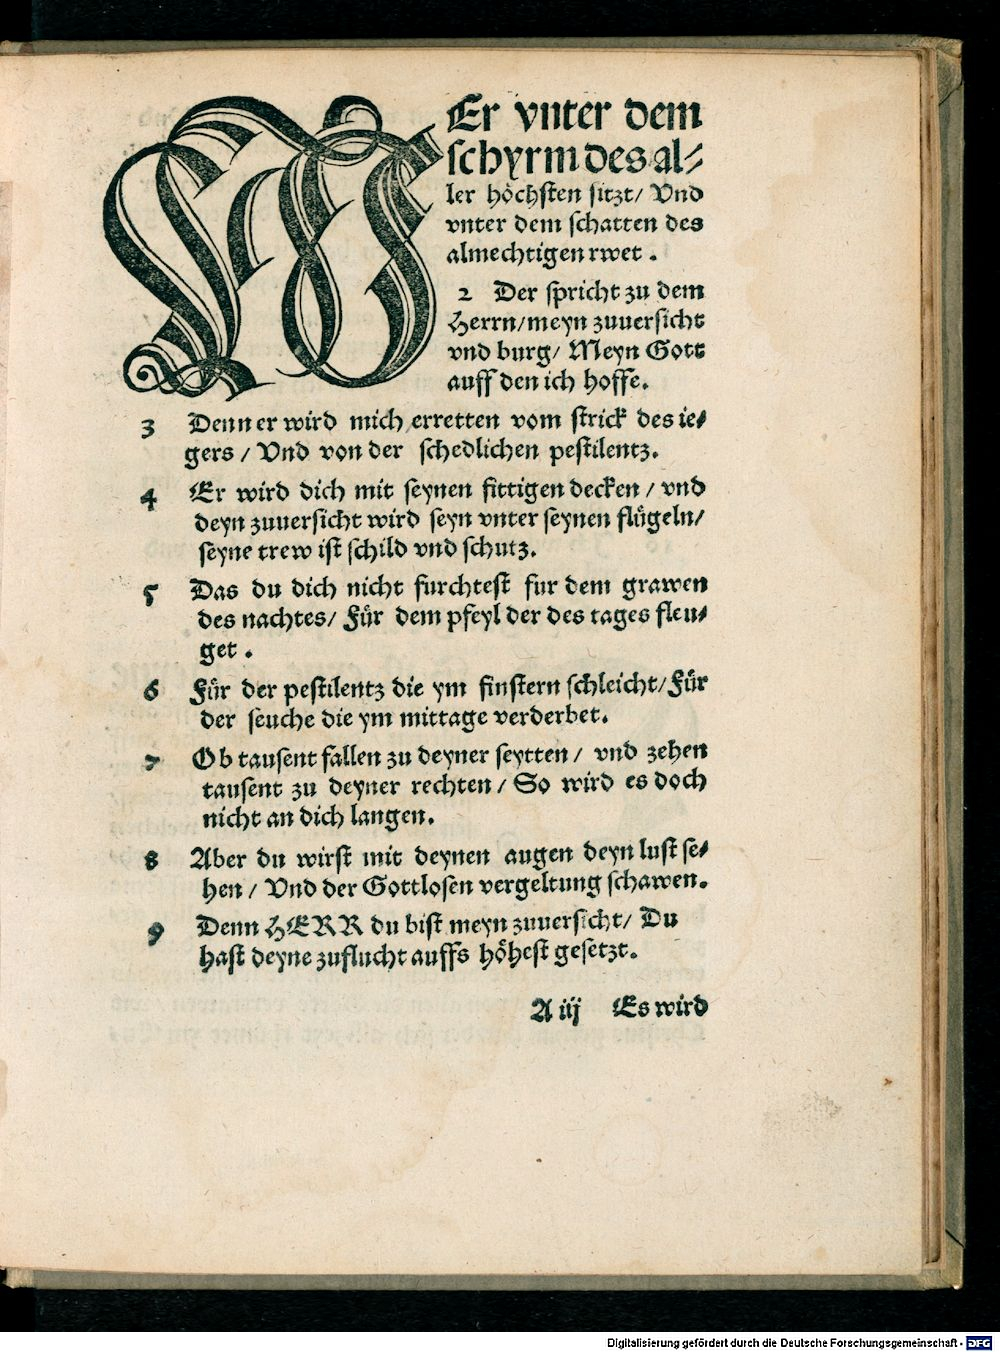 WEr vnter dem
schyrm des al⸗
ler höchsten sitzt/ Vnd
vnter dem schatten des
almechtigen rwet .
2 Der spricht zu dem
Herrn/meyn zuuersicht
vnd burg/ Meyn Gott
auff den ich hoffe.
3 Denn er wird mich erretten vom strick des ie⸗
gers / Vnd von der schedlichen pestilentz.
4 Er wird dich mit seynen fittigen decken / vnd
deyn zuuersicht wird seyn vnter seynen flügeln/
seyne trew ist schild vnd schutz.
5 Das du dich nicht furchtest fur dem grawen
des nachtes/ Für dem pfeyl der des tages fleu⸗
get .
6 Für der pestilentz die ym finstern schleicht/Für
der seuche die ym mittage verderbet.
7 Ob tausent fallen zu deyner seytten / vnd zehen
tausent zu deyner rechten / So wird es doch
nicht an dich langen.
8 Aber du wirst mit deynen augen deyn lust se⸗
hen / Vnd der Gottlosen vergeltung schawen.
9 Denn HERR du bist meyn zuuersicht/ Du
hast deyne zuflucht auffs höhest gesetzt.
A iij Es wird
Digitalisierung gefördert durch die Deutsche Forschungsgemeinschaft - DFG